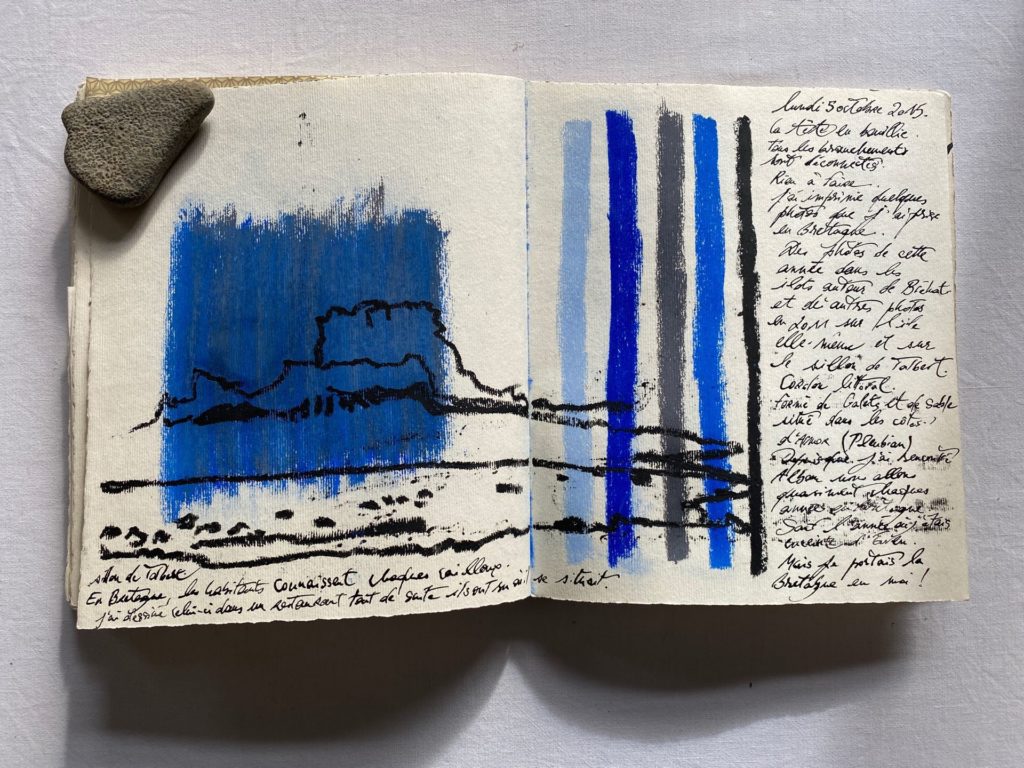 sillon de Talbert
En Bretagne, les habitants connaissent chaques cailloux.
j'ai dessiné celui-ci dans un restaurant tout de suite ils ont su où il se situait
lundi 5 octobre 2015.
la tête en bouillie.
tous les branchements
sont déconnectés.
Rien à faire.
j'ai imprimé quelques
photos que j'ai prise
en Bretagne.
Des photos de cette
année dans les
ilots autour de Bréhat
et d'autres photos
en 2011 sur l'île
elle-même et sur
le sillon de Talbert.
Cordon litoral
formé de Galets et de sable
situé dans les côtes
d'Armor (Pleubian)
Depuis que j'ai rencontré
Alban nous allons
quasiment chaques
années en Bretagne
Sauf l'année où j'étais
enceinte d'
Mais je portais la
Bretagne en moi !